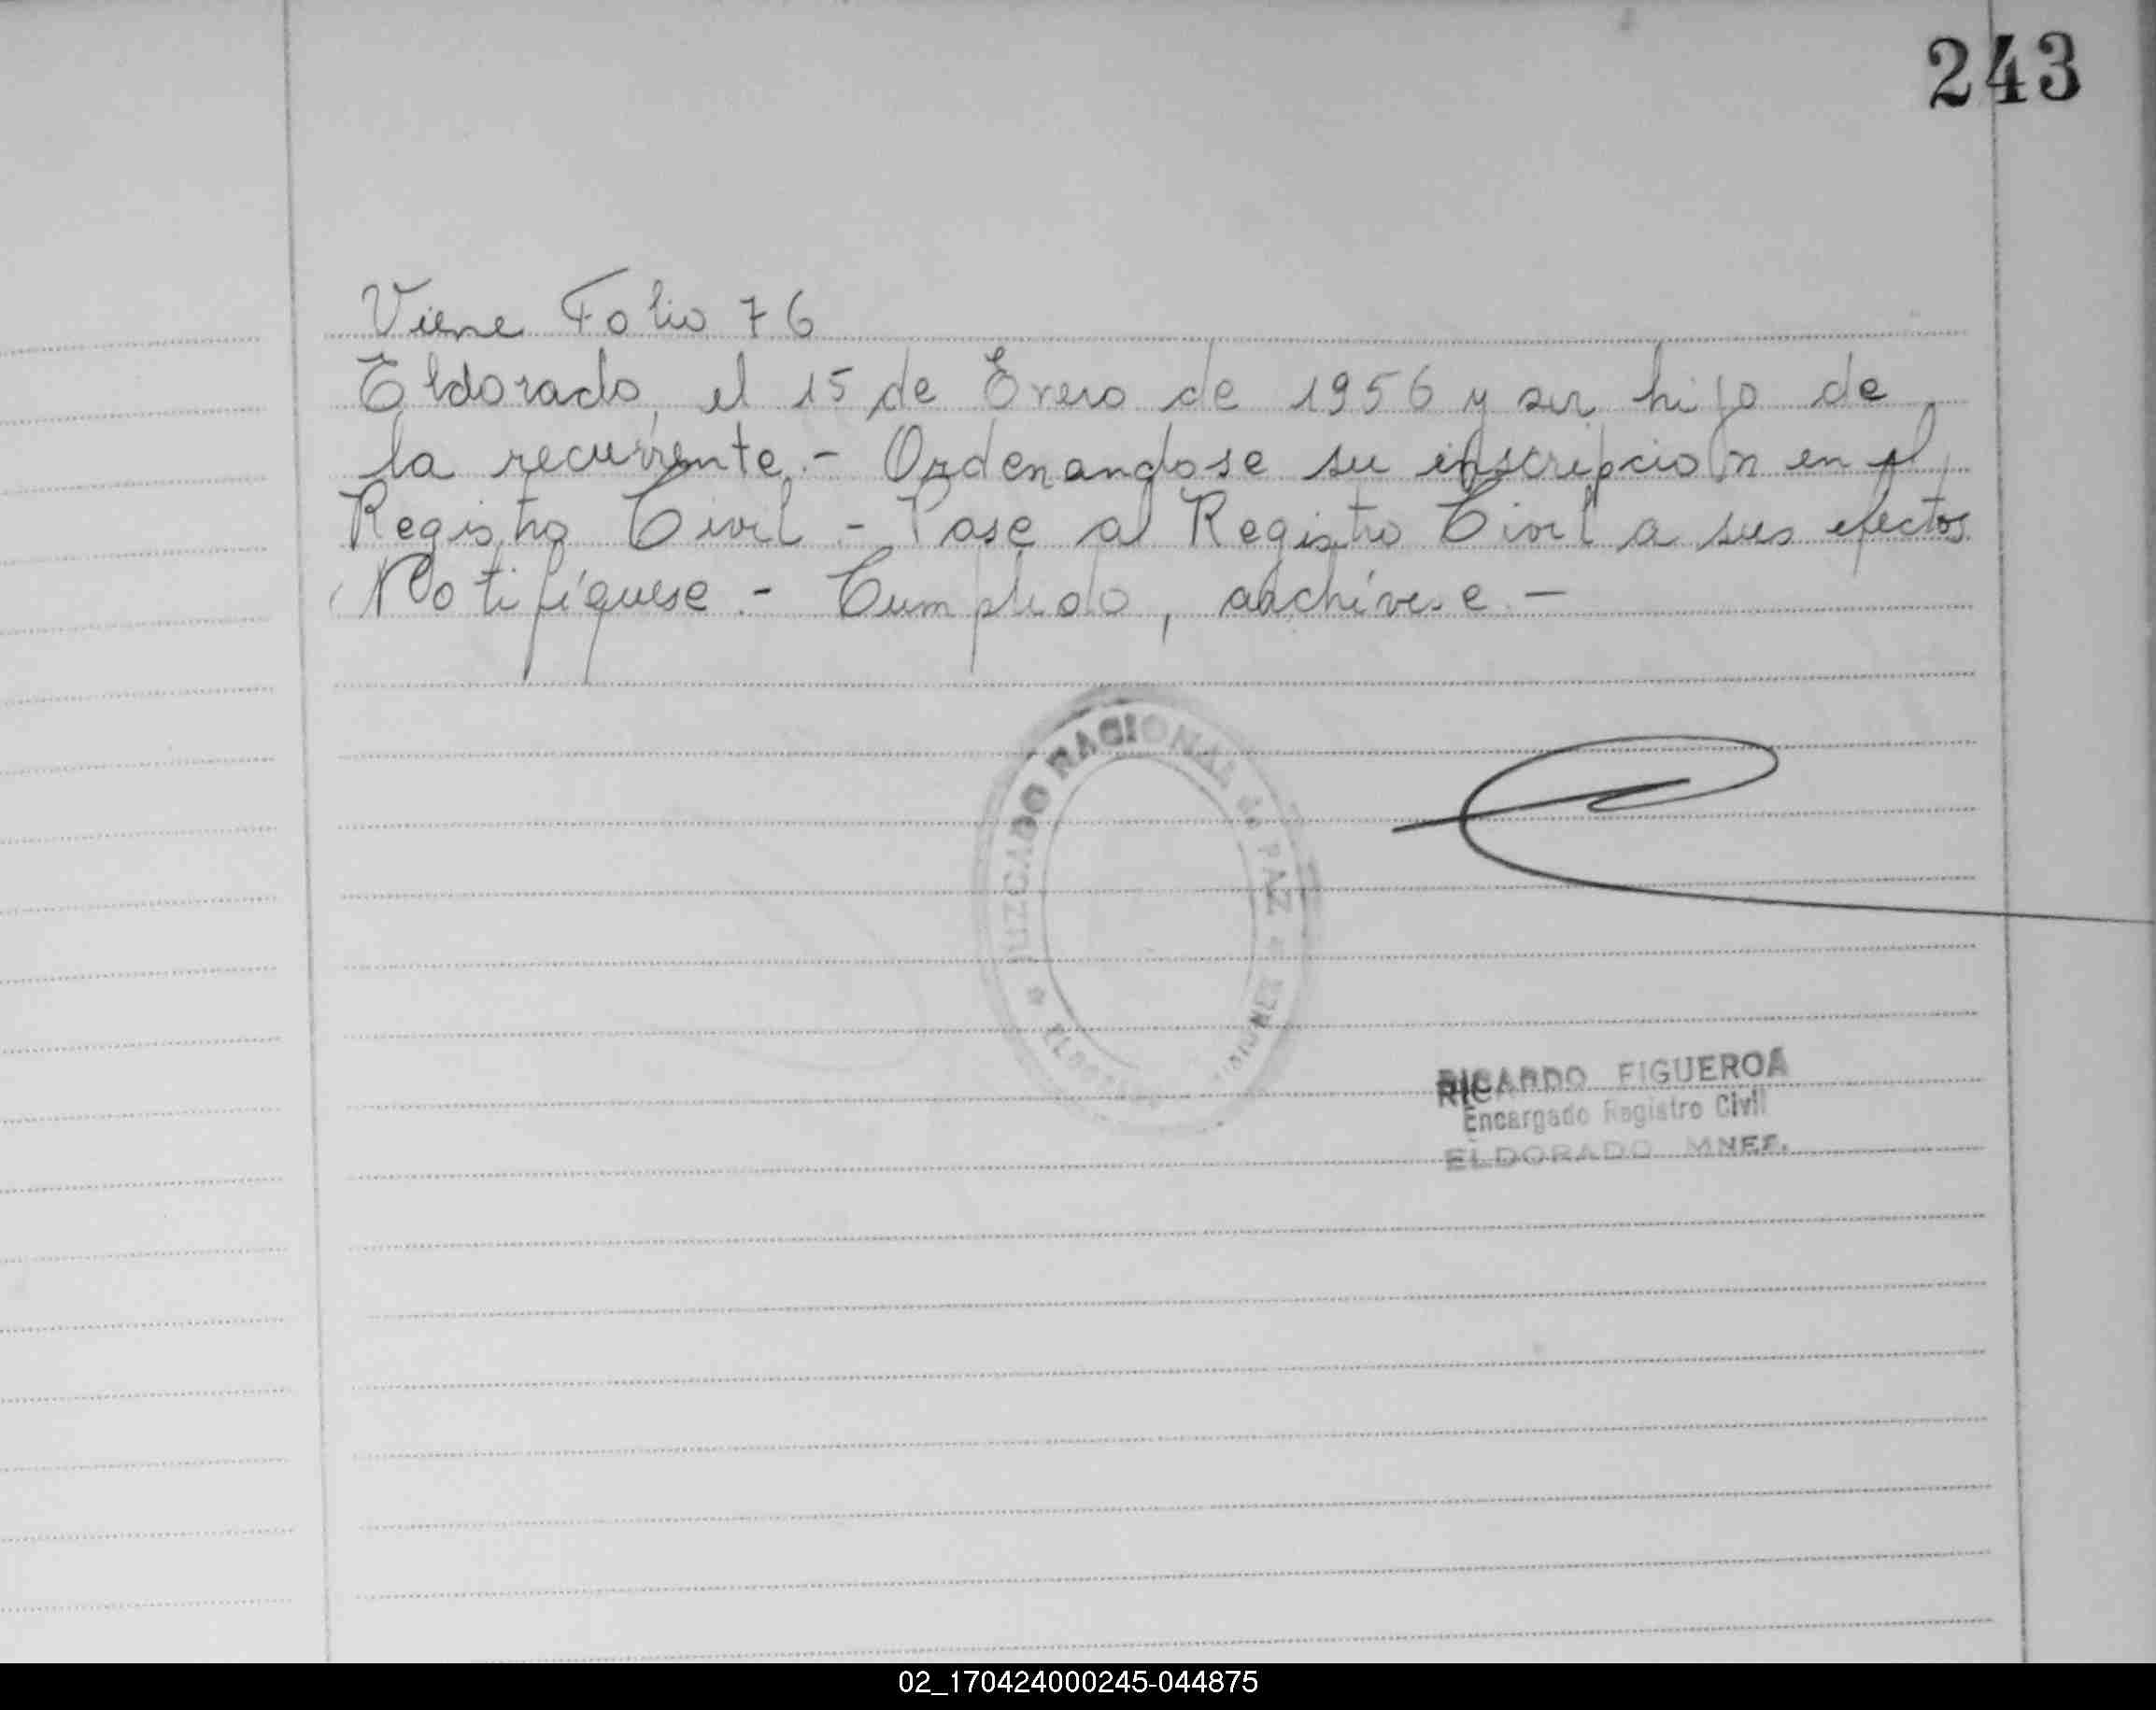 243
Viene Folio 76
Eldorado, el 15 de Enero de 1956 y ser hijo de
la recurrente.- Ordenandose su inscripcion en el
Registro Civil - Pase al Registro Civil a sus efectos
Notifíquese.- Cumplido, archívese.-
JUZGADO NACIONAL de PAZ
ELDORADO MISIONES
RICARDO FIGUEROA
Encargado Registro Civil
ELDORADO MNES.
02_170424000245-044875